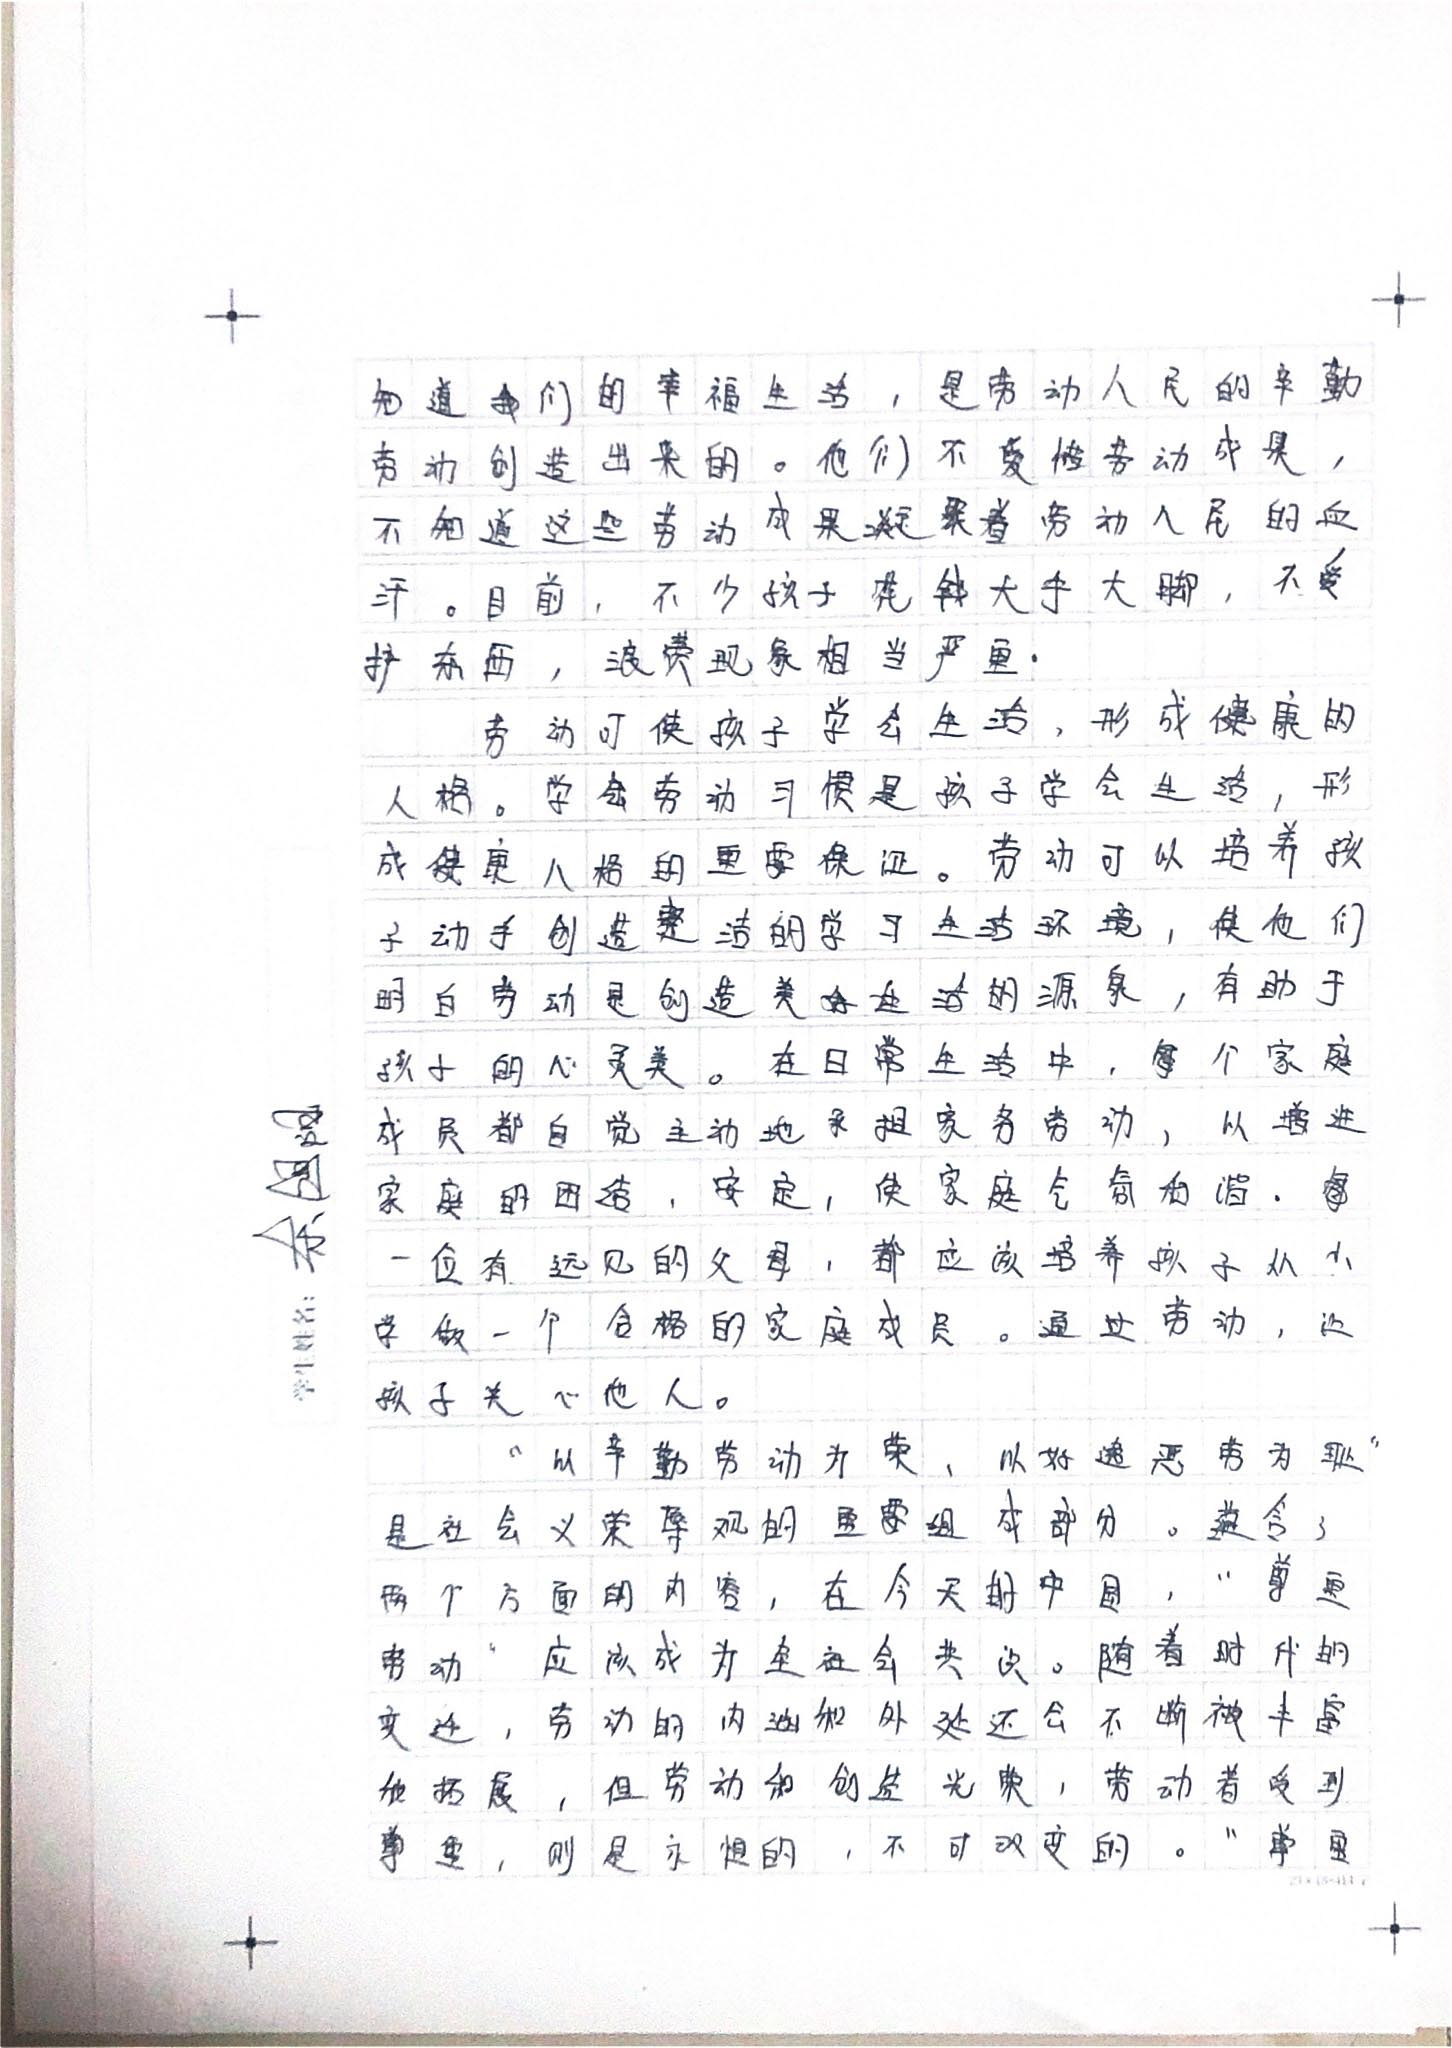 知道我们的幸福生活，是劳动人民的辛勤
劳动创造出来的。他们不爱惜劳动成果，
不知道这些劳动成果凝聚着劳动人民的血
汗。目前，不少孩子花钱大手大脚，不爱
护东西，浪费现象相当严重.
劳动可使孩子学会生活，形成健康的
人格。学会劳动习惯是孩子学会生活，形
成健康人格的重要保证。劳动可以培养孩
子动手创造整洁的学习生活环境，使他们
明白劳动是创造美好生活的源泉，有助于
孩子的心灵美。在日常生活中，每个家庭
成员都自觉主动地承担家务劳动，以增进
家庭的团结，安定，使家庭气氛和谐.每
一位有远见的父母，都应该培养孩子从小
学做一个合格的家庭成员。通过劳动，让
孩子关心他人。
“以辛勤劳动为荣，以好逸恶劳为耻”
是社会义荣辱观的重要组成部分。蕴含了
两个方面的内容，在今天的中国，“尊重
劳动”应该成为全社会共识。随着时代的
变迁，劳动的内涵和外延还会不断被丰富
和拓展，但劳动和创造光荣，劳动者受到
尊重，则是永恒的，不可改变的。“尊重
学生姓名：